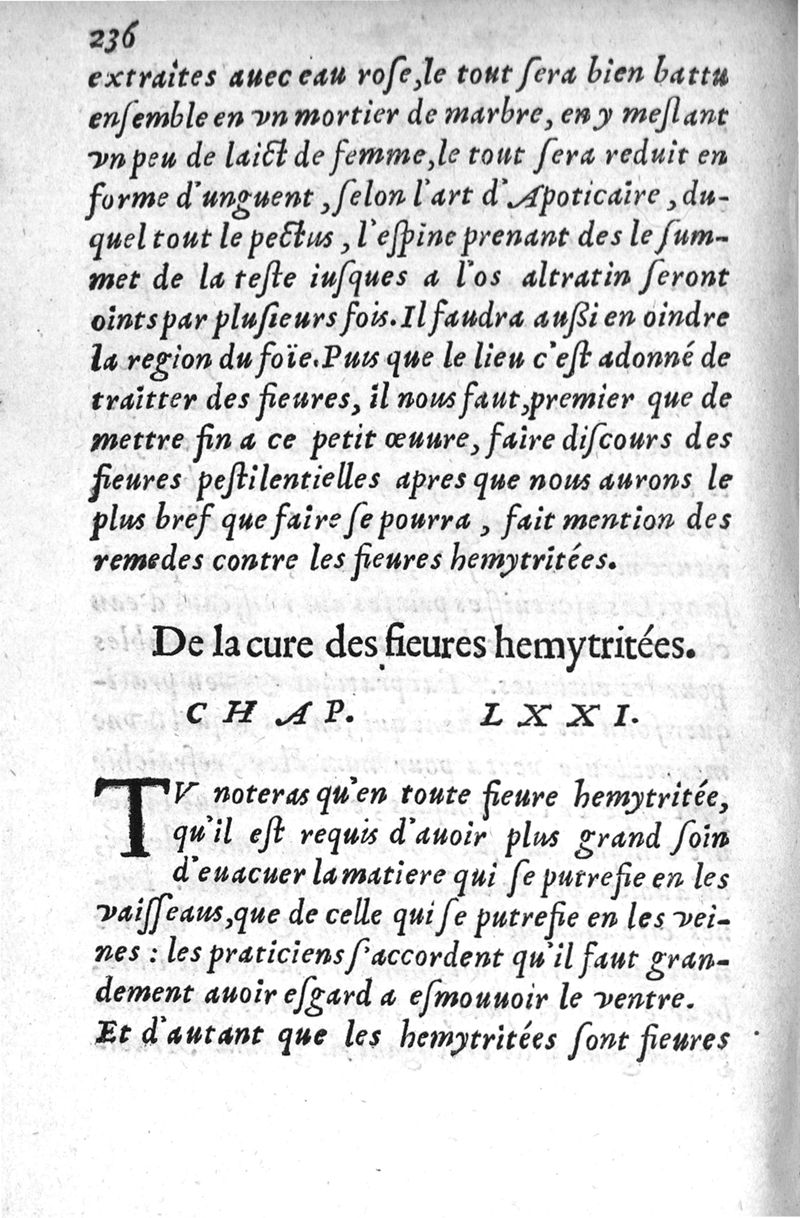 236
extraites auec eau roſe,le tout ſera bien battu
enſemble en vn mortier de marbre, en y meſlant
vn peu de laict de femme,le tout ſera reduit en
forme d'unguent ,ſelon l'art d'Apoticaire ,du-
quel tout le pectus , l'eſpine prenant des le ſum-
met de la teſte iuſques a l'os altratin ſeront
oints par pluſieurs fois.Il faudra außi en oindre
la region du foïe.Puis que le lieu c'eſt adonné de
traitter des fieures, il nous faut,premier que de
mettre fin a ce petit œuure, faire diſcours des
fieures peſtilentielles apres que nous aurons le
plus bref que faire ſe pourra , fait mention des
remedes contre les fieures hemytritées.
De la cure des fieures hemytritées.
CHAP. LXXI.
TV noteras qu'en toute fieure hemytritée,
qu'il eſt requis d'auoir plus grand ſoin
d'euacuer la matiere qui ſe putrefie en les
vaiſſeaus,que de celle qui ſe putrefie en les vei-
nes : les praticiens ſ'accordent qu'il faut gran-
dement auoir eſgard a eſmouuoir le ventre.
Et d'autant que les hemytritées ſont fieures